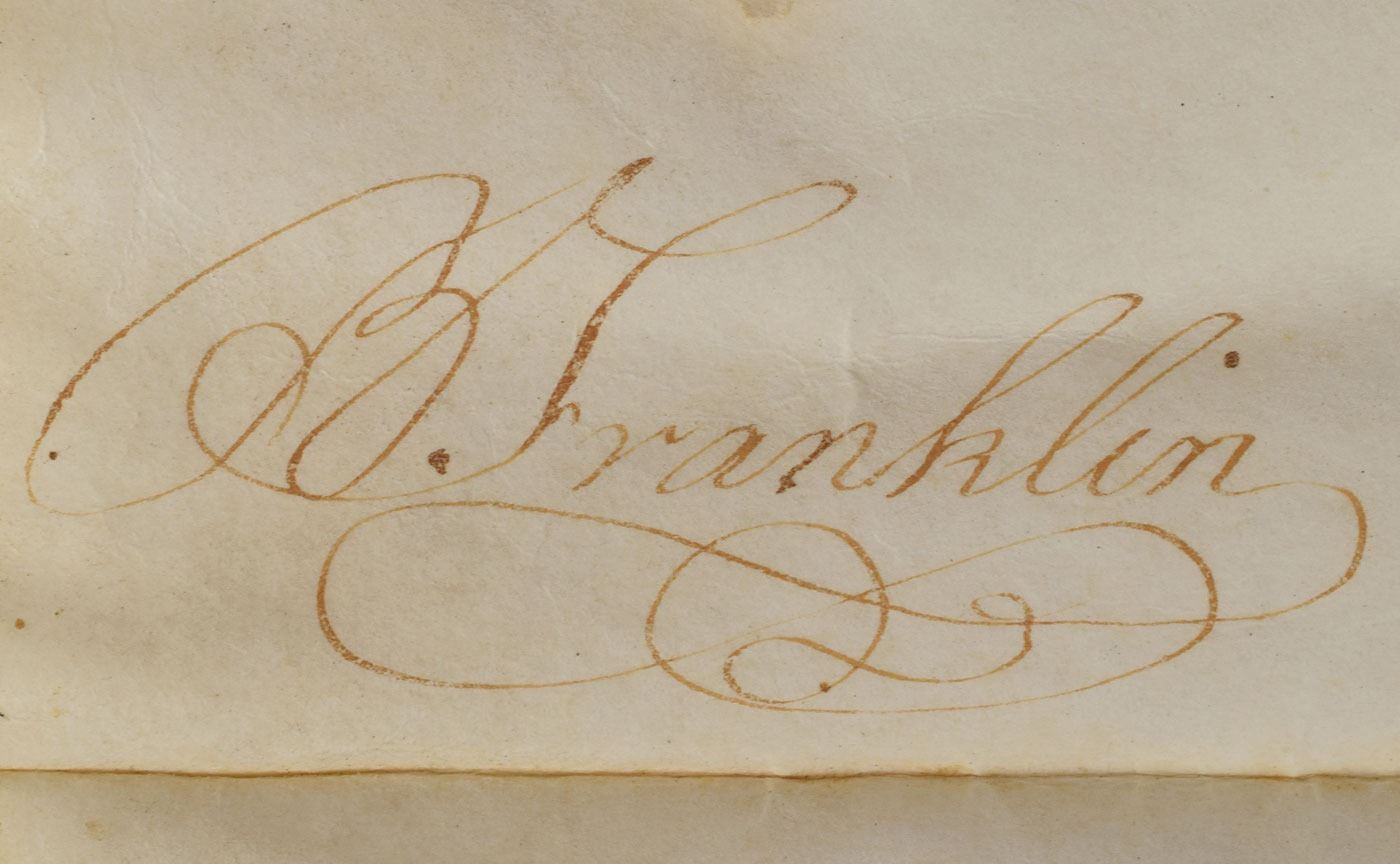 B. Franklin